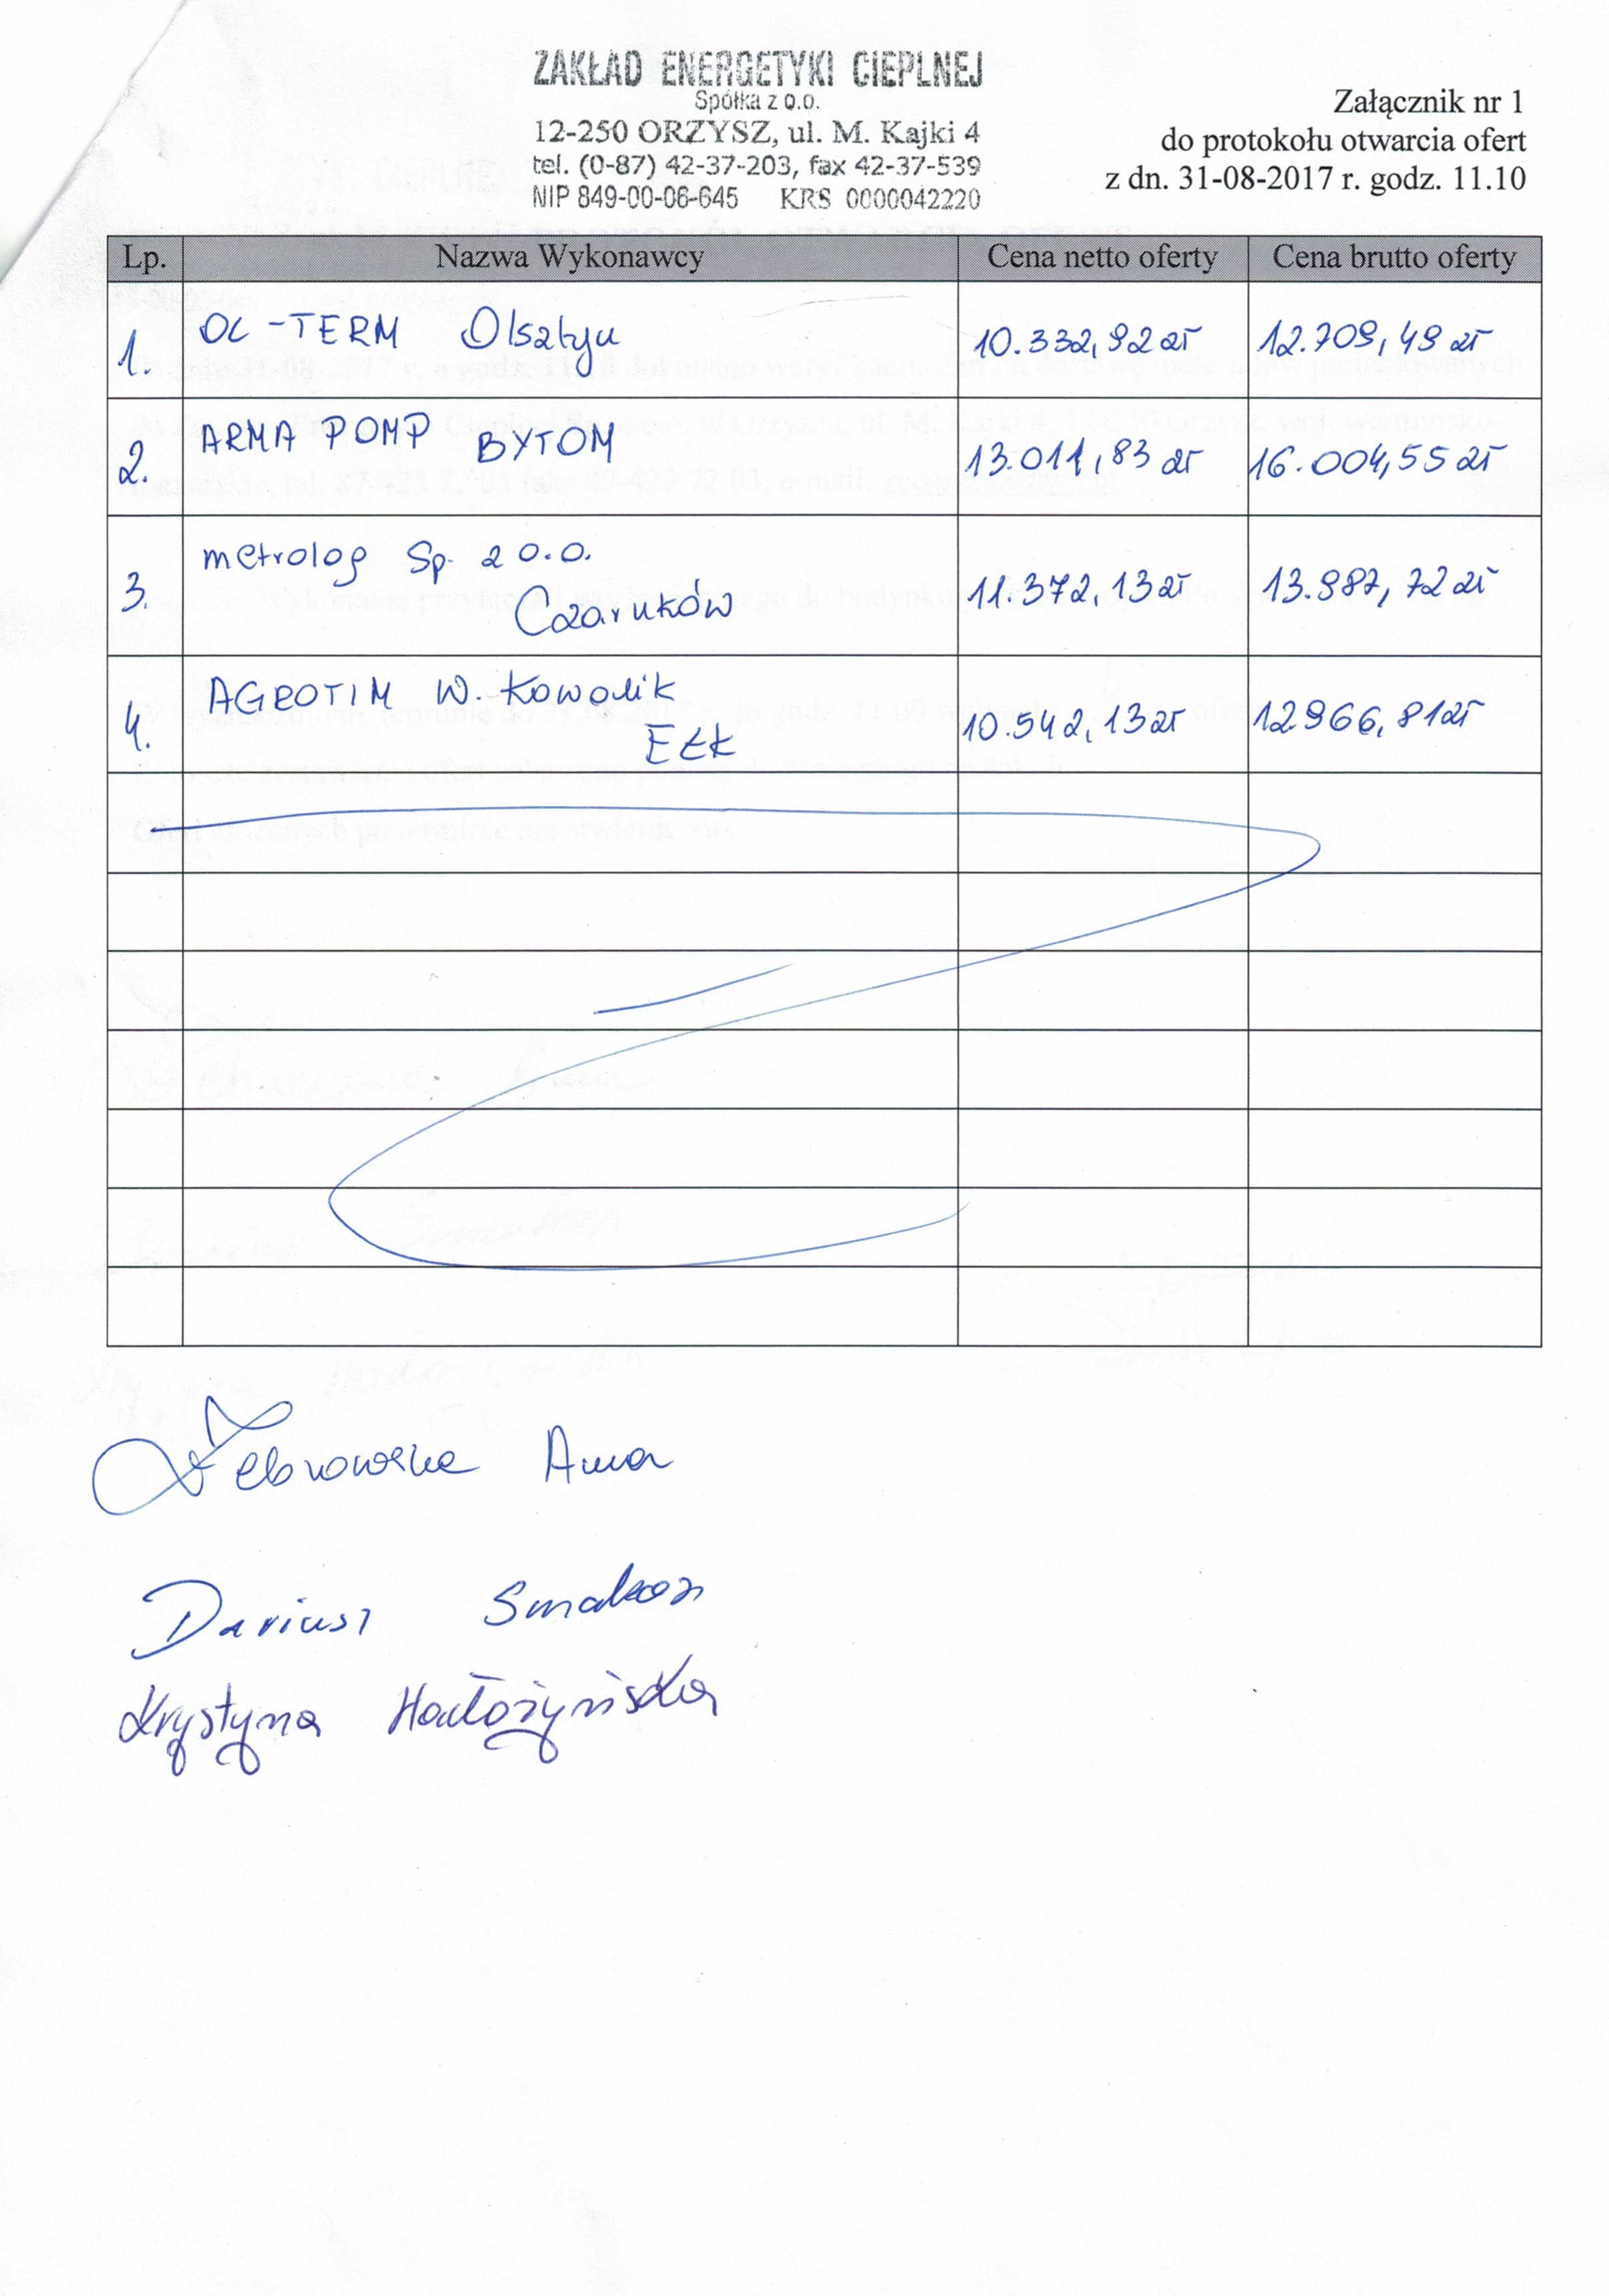 ZAKŁAD ENERGETYKI CIEPLNEJ
Spółka z o.o.
12-250 ORZYSZ, ul. M. Kajki 4
tel. (0-87) 42-37-203, fax 42-37-539
NIP 849-00-06-645 KRS 0000042220
Załącznik nr 1
do protokołu otwarcia ofert
z dn. 31-08-2017 r. godz. 11.10
Lp. Nazwa Wykonawcy Cena netto oferty Cena brutto oferty
1. OL-TERM Olsztyn 10.332,92 zł 12.709,49 zł
2. ARMA POMP BYTOM 13.011,83 zł 16.004,55 zł
3. metrolog Sp. z o.o.
Czarnków 11.372,13 zł 13.987,72 zł
4. AGROTIM W. Kowalik
EŁK 10.542,13 zł 12966,81 zł
Anna
Dariusz
Krystyna